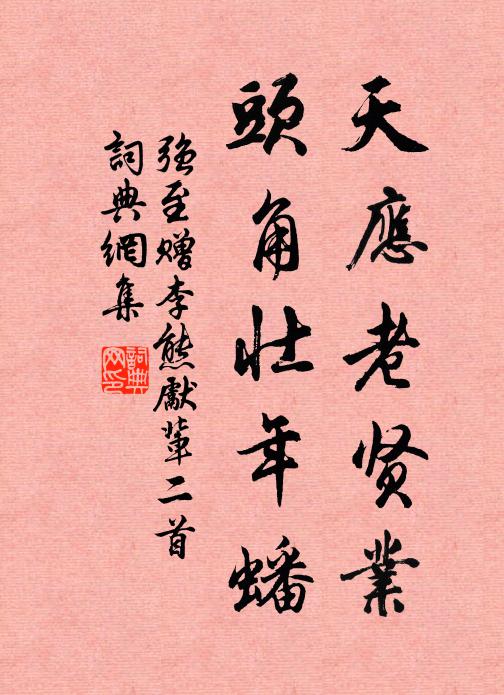 天應老贤業
頭角壯年蟠
强至赠李熊獻輩二首
詞典網集
詞典网印